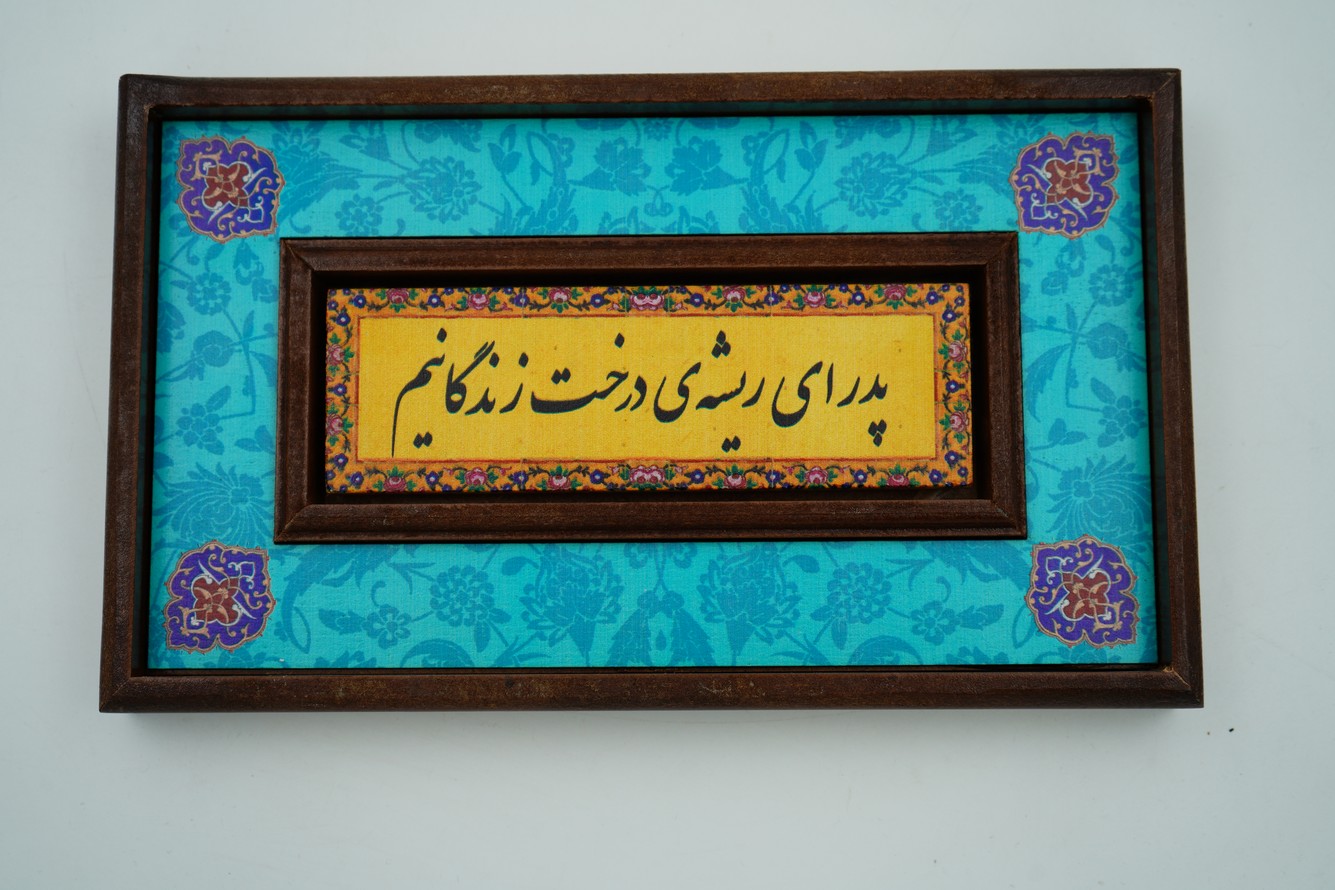 پدر ای ریشه‌ی درخت زندگانیم